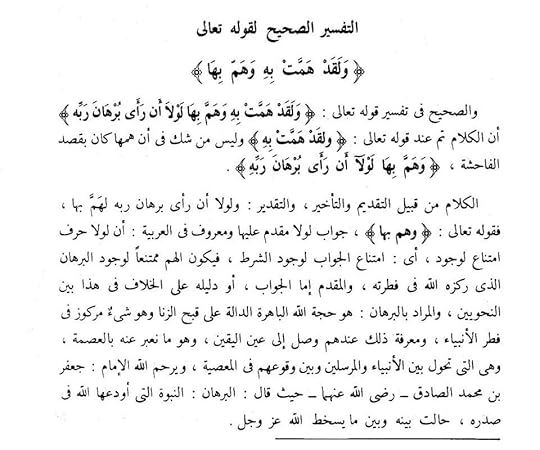 التفسير الصحيح لقوله تعالى
﴿ وَلَقَدْ هَمَّتْ بِهِ وَهَمَّ بِهَا ﴾
والصحيح فى تفسير قوله تعالى : ﴿ وَلَقَدْ هَمَّتْ بِهِ وَهَمَّ بِها لَوْلاَ أَن رَأَى بُرْهَانَ رَبِّه ﴾
أن الكلام تم عند قوله تعالى : ﴿ ولقدْ هَمَّتْ بِه ﴾ وليس من شك فى أن همها كان بقصد
الفاحشة ، ﴿ وَهَمَّ بِهَا لَوْلآ أَن رَأَى بُرْهَانَ رَبِّهِ ﴾ .
الكلام من قبيل التقديم والتأخير ، والتقدير : ولولا أن رأى برهان ربه لهَمَّ بها ،
فقوله تعالى : ﴿ وهم بها ﴾ ، جواب لولا مقدم عليها ومعروف فى العربية : أن لولا حرف
امتناع لوجود ، أى : امتناع الجواب لوجود الشرط ، فيكون الهم ممتنعاً لوجود البرهان
الذى ركزه الله فى فطرته ، والمقدم إما الجواب ، أو دليله على الخلاف فى هذا بين
النحويين ، والمراد بالبرهان : هو حجة الله الباهرة الدالة على قبح الزنا وهو شىءٌ مركوز فى
فطر الأنبياء ، ومعرفة ذلك عندهم وصل إلى عين اليقين ، وهو ما نعبر عنه بالعصمة ،
وهى التى تحول بين الأنبياء والمرسلين وبين وقوعهم فى المعصية ، ويرحم الله الإمام : جعفر
بن محمد الصادق ــ رضى الله عنهما ــ حيث قال : البرهان : النبوة التى أودعها الله فى
صدره ، حالت بينه وبين ما يسخط الله عز وجل .